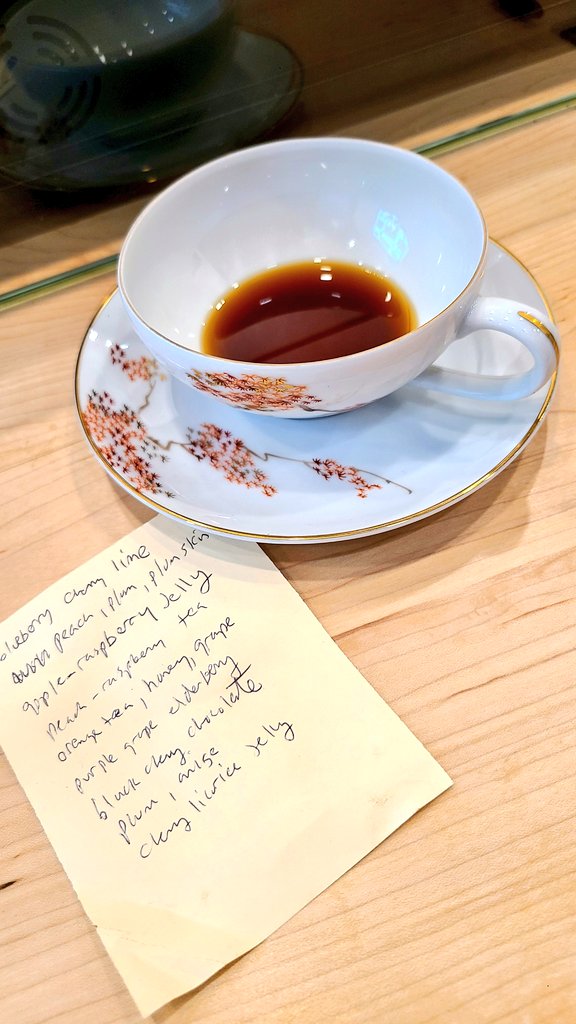 blueberry cherry lime
peach, plum, plum skin
apple-raspberry jelly
peach-raspberry tea
orange tea, honey, grape
purple grape elderberry
black cherry chocolate
plum, anise
cherry licorice jelly